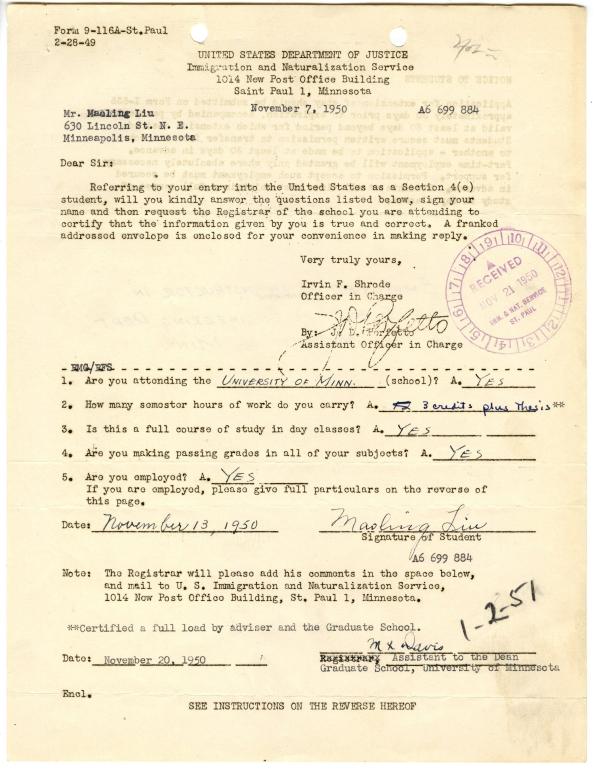 Form 9-116A-St.Paul
2-28-49
UNITED STATES DEPARTMENT OF JUSTICE
Immigration and Naturalization Service
1014 New Post Office Building
Saint Paul 1, Minnesota
November 7, 1950 A6 699 884
Mr. Maoling Liu
630 Lincoln St. N. E.
Minneapolis, Minnesota
Dear Sir:
Referring to your entry into the United States as a Section 4(e)
student, will you kindly answer the questions listed below, sign your
name and then request the Registrar of the school you are attending to
certify that the information given by you is true and correct. A franked
addressed envelope is enclosed for your convenience in making reply.
Very truly yours,
Irvin F. Shrode
Officer in Charge
By:
Assistant Officer in Charge
RECEIVED
NOV 21 1950
IMM. & NAT. SERVICE
ST. PAUL
EMG/EFS
1. Are you attending the UNIVERSITY OF MINN. (school)? A. YES
2. How many semester hours of work do you carry? A. 3 credits plus Thesis**
3. Is this a full course of study in day classes? A. YES
4. Are you making passing grades in all of your subjects? A. YES
5. Are you employed? A. YES
If you are employed, please give full particulars on the reverse of
this page.
Date: November 13, 1950 Maoling Liu
Signature of Student
A6 699 884
Note: The Registrar will please add his comments in the space below,
and mail to U. S. Immigration and Naturalization Service,
1014 New Post Office Building, St. Paul 1, Minnesota.
1-2-51
**Certified a full load by adviser and the Graduate School.
M X Davis
Date: November 20, 1950 Registrar, Assistant to the Dean
Graduate School, University of Minnesota
Encl.
SEE INSTRUCTIONS ON THE REVERSE HEREOF